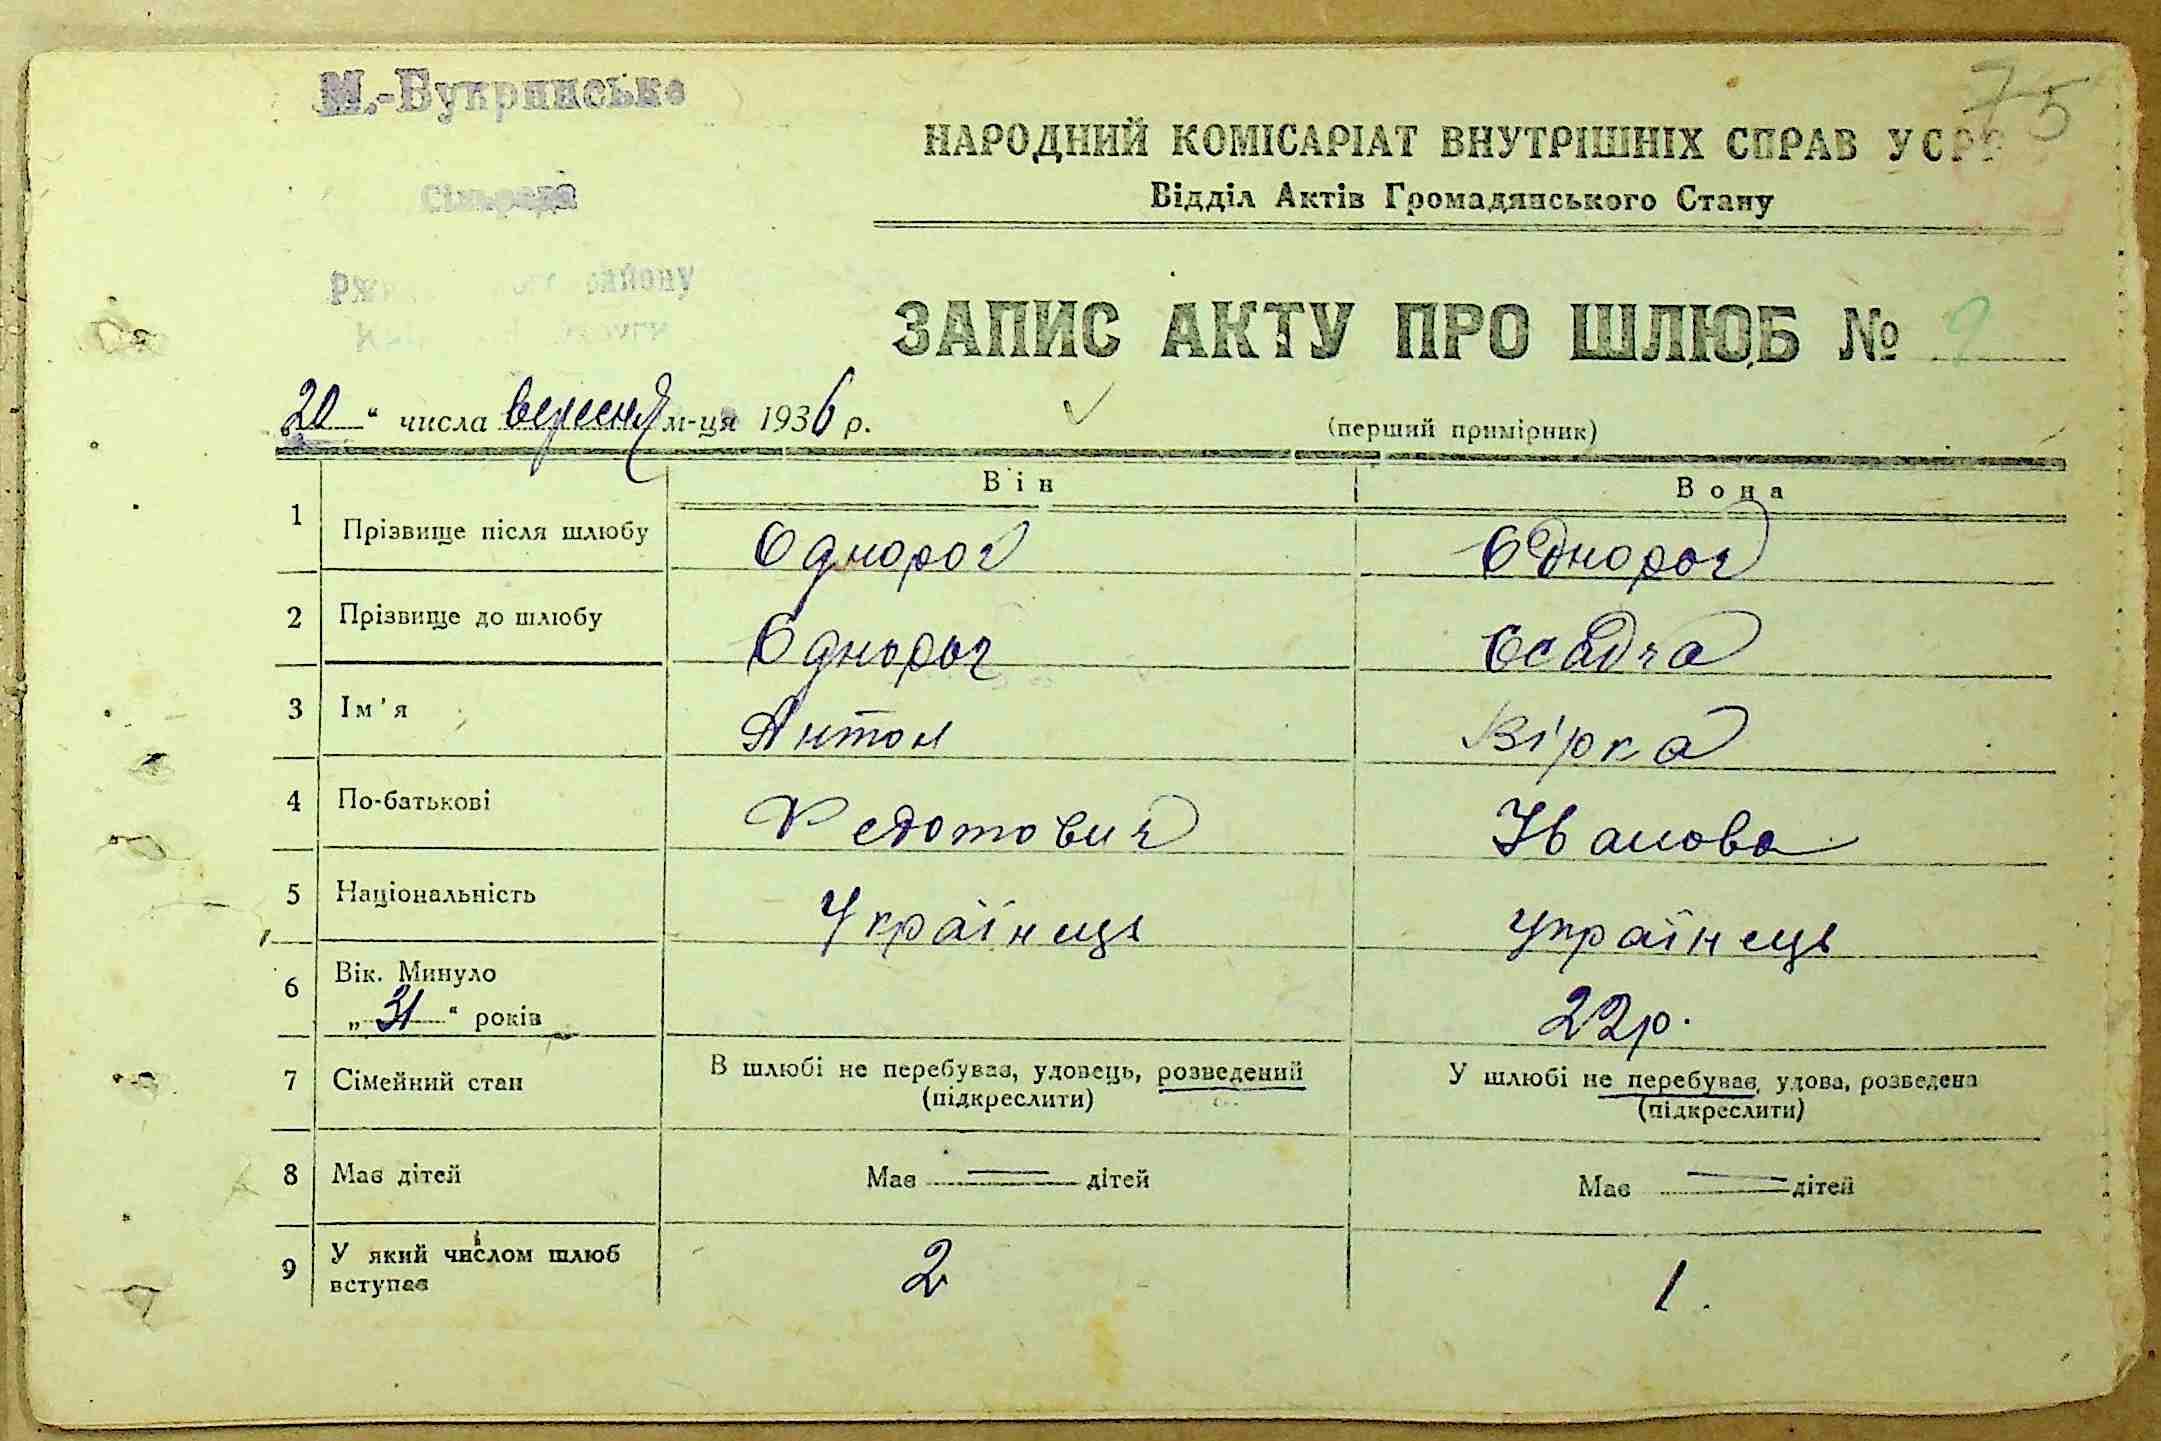 М.-Букринська
75
НАРОДНИЙ КОМІСАРІАТ ВНУТРІШНІХ СПРАВ УСРР
Сільрада
Відділ Актів Громадянського Стану
району
ЗАПИС АКТУ ПРО ШЛЮБ №
20 " числа вересня м-ця 1936 р.
(перший примірник)
Він
Вона
1 Прізвище після шлюбу Однорог Однорог
2 Прізвище до шлюбу Однорог Осадча
3 Ім'я Антон Вірка
4 По-батькові Федотович Іванова
5 Національність Українець Українець
6 Вік. Минуло
„ 31 " років 22 р.
7 Сімейний стан В шлюбі не перебував, удовець, розведений У шлюбі не перебував, удова, розведена
(підкреслити) (підкреслити)
8 Має дітей Має дітей Має дітей
9 У який числом шлюб
вступає 2 1.